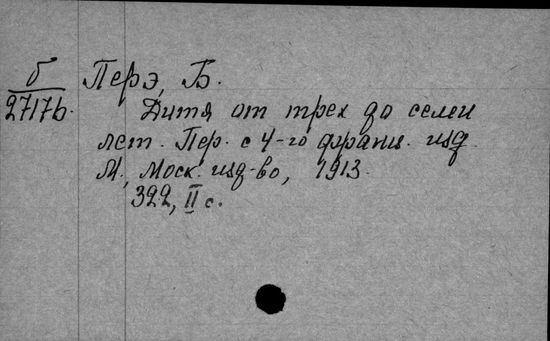 б Перэ, Б.
27176.
Дитя от трех до семи
лет. Пер. с 4-го франц. изд.
М., Моск. изд-во, 1913.
322, II с.